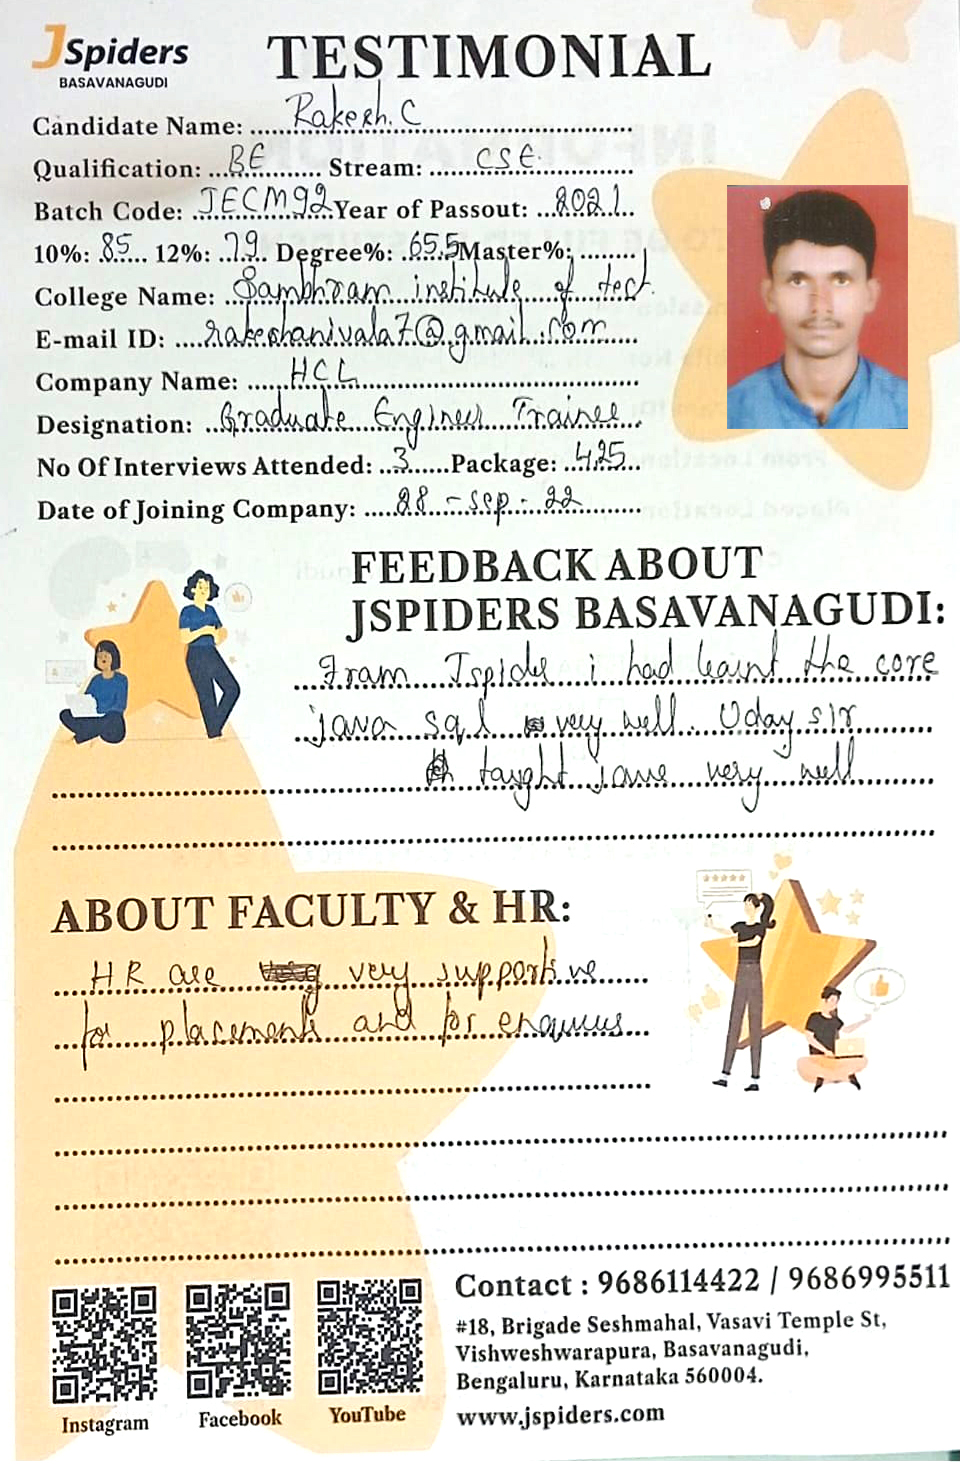 JSpiders
BASAVANAGUDI
TESTIMONIAL
Candidate Name: Rakesh. C
Qualification: BE Stream: CSE
Batch Code: JECM92 Year of Passout: 2021
10%: 85 12%: 79 Degree%: 65.5 Master%:
College Name: Sambhram institute of tech.
E-mail ID: rakeshanivala7@gmail.com
Company Name: HCL
Designation: Graduate Engineer Trainee
No Of Interviews Attended: 3 Package: 4.25
Date of Joining Company: 28 - Sep - 22
FEEDBACK ABOUT
JSPIDERS BASAVANAGUDI:
From Jspider i had learnt the core
java sql very well. Uday sir
taught java very well
ABOUT FACULTY & HR:
HR are very supportive
for placements and for enquires
Contact : 9686114422 / 9686995511
#18, Brigade Seshmahal, Vasavi Temple St,
Vishweshwarapura, Basavanagudi,
Bengaluru, Karnataka 560004.
www.jspiders.com
Instagram
Facebook
YouTube